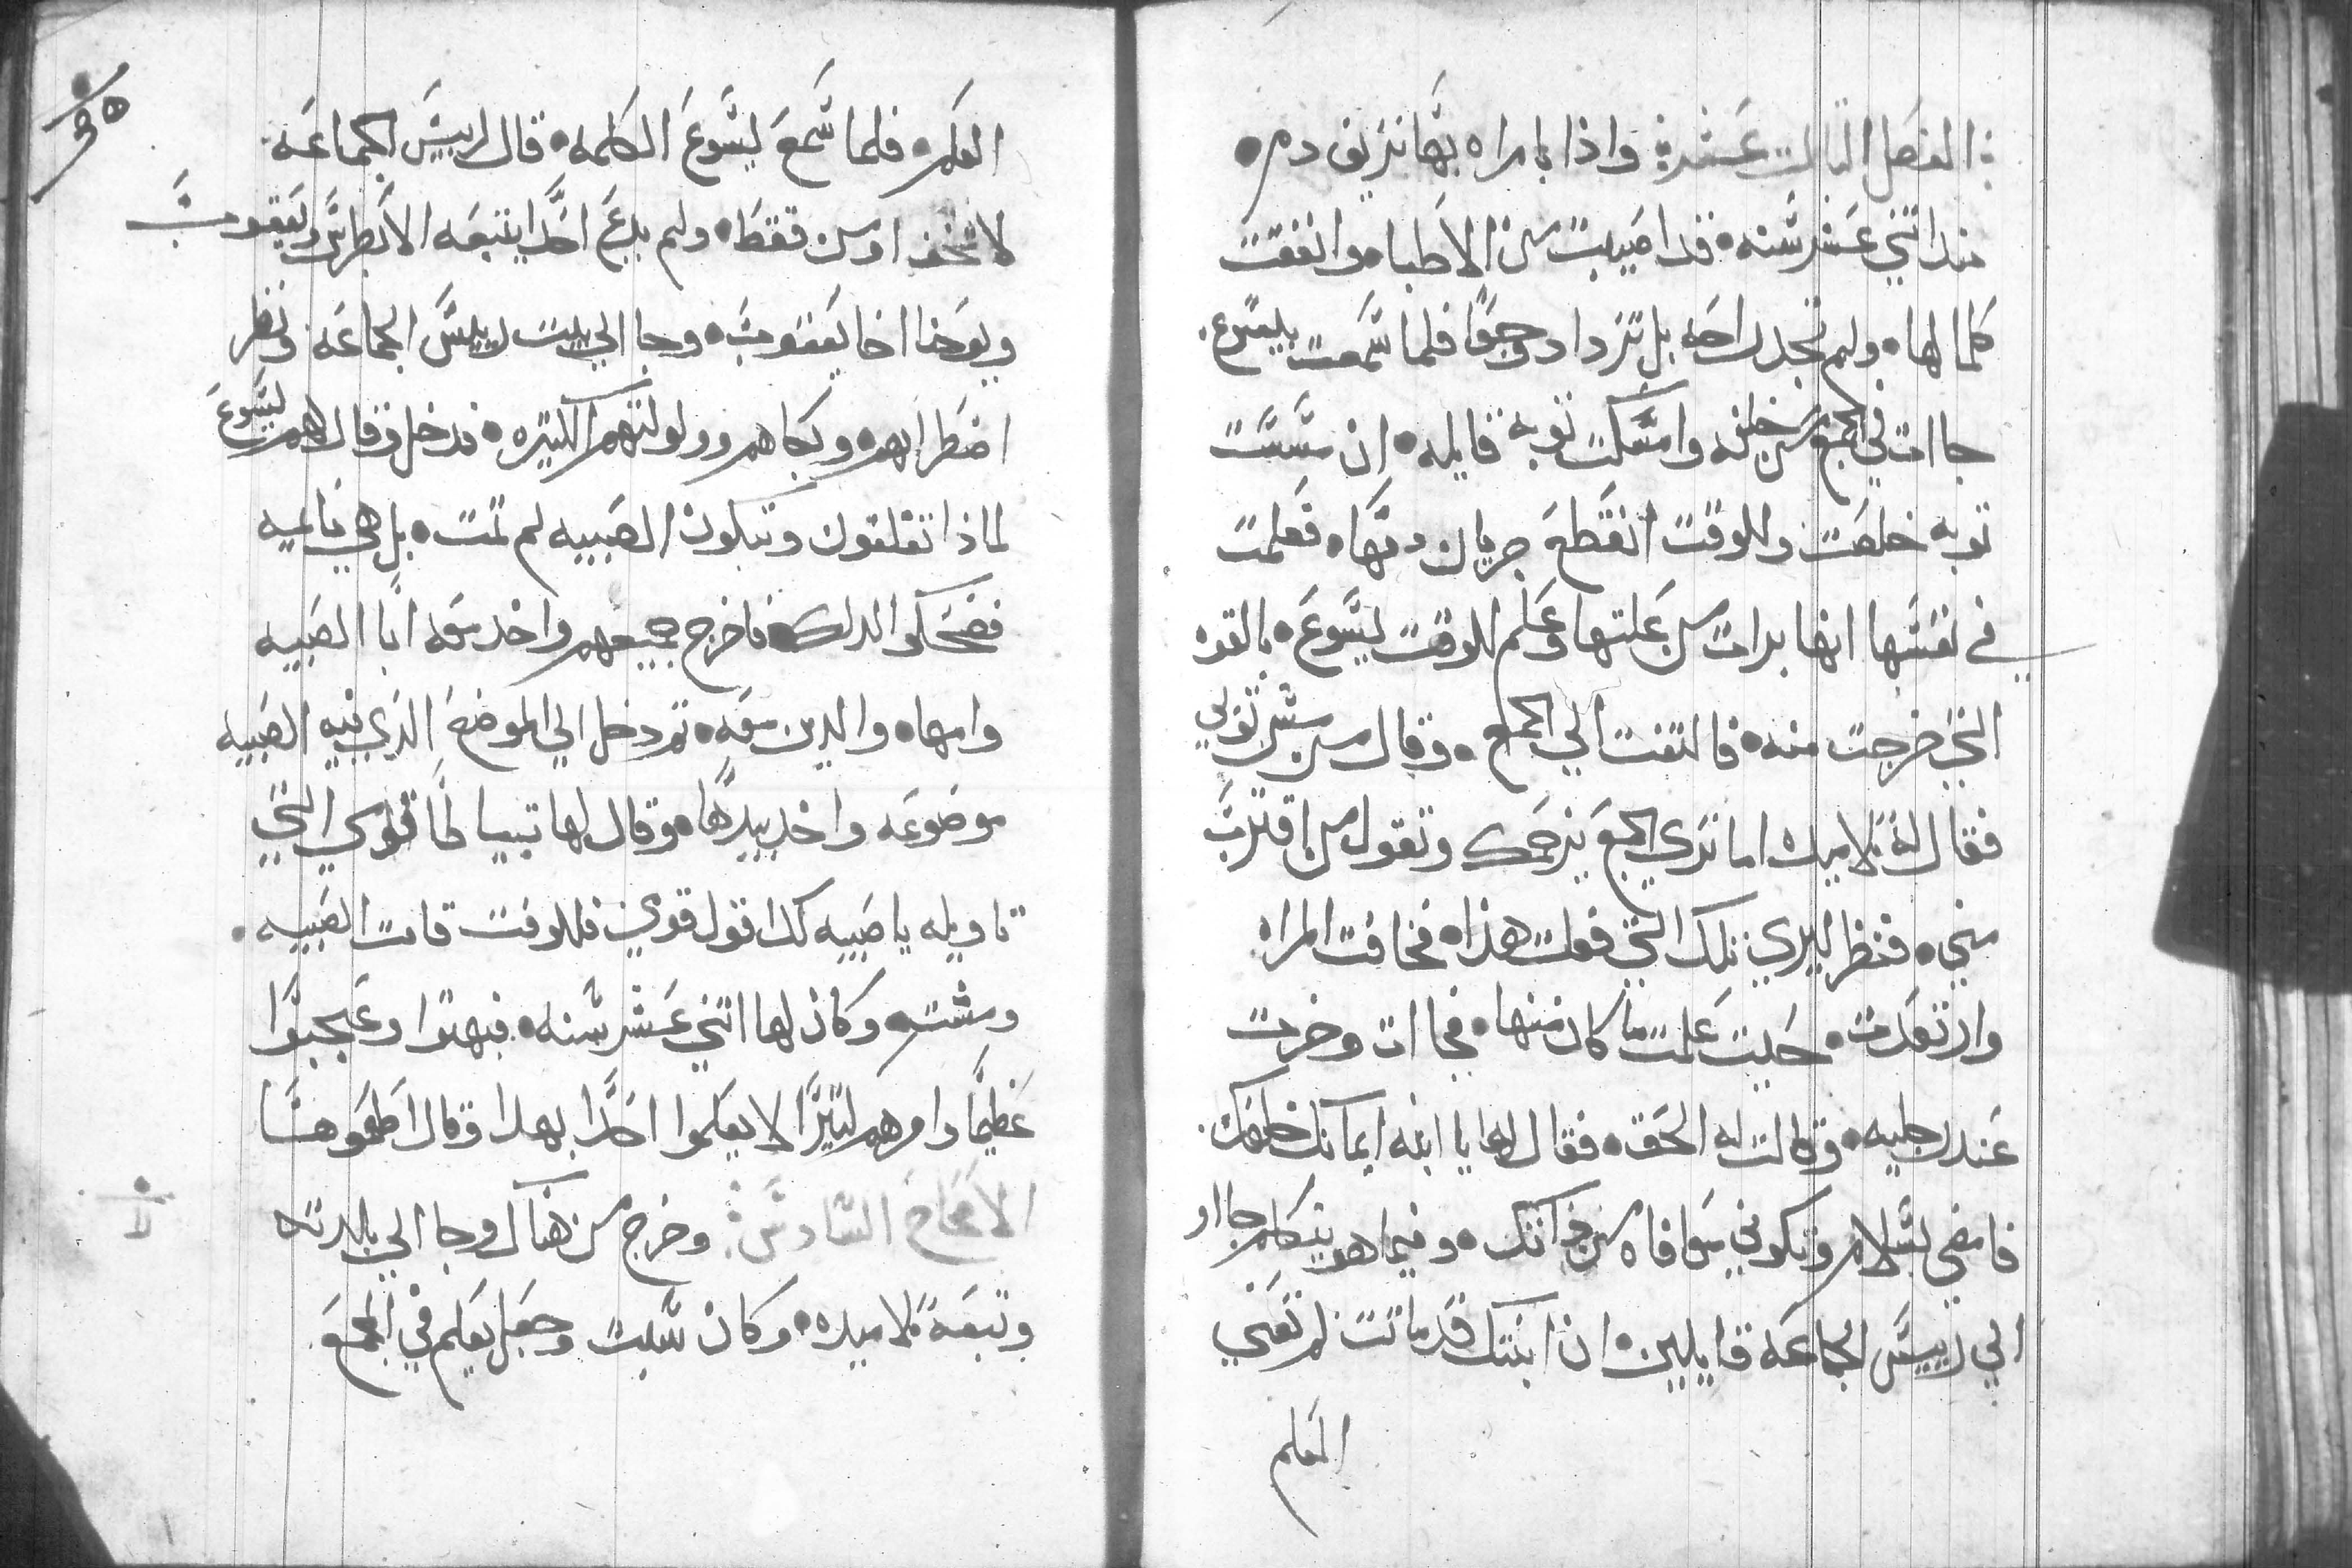 الفصل الثالث عشر واذا بامراه بها نزيف دم
منذ اثني عشر سنه قد اصيبت من الاطباء وانفقت
كلما لها ولم تجد راحه بل تزداد وجعًا فلما سمعت بيسوع
جاات في الجمع من خلفه وامسكت ثوبه قايله ان مسست
ثوبه خلصت وللوقت انقطع جريان دمها فعلمت
في نفسها انها برات من علتها وعلم للوقت يسوع بالقوه
التي خرجت منه فالتفت الي الجمع وقال من مس ثوبي
فقال له تلاميده اما تري الجمع يزحمك وتقول من اقترب
مني فنظر ليري تلك التي فعلت هذا فخافت المراه
وارتعدت حيت علمت ما كان منها فجاات وخرت
عند رجليه وقالت له الحق فقال لها يا ابنه ايمانك خلصك
فامضي بسلام وتكوني معافاه من وفيما هو يتكلم جااو
الي رييس الجماعه قايلين ان ابنتك قد ماتت لم تعني
المعلم
٣٥
المعلم فلما سمع يسوع الكلمه قال لرييس الجماعه
لا تخف اومن فقط ولم يدع احدًا يتبعه الا بطرس ويعقوب
ويوحنا اخا يعقوب وجا الي بيت رييس الجماعه ونظر
اضطرابهم وبكاهم وولولتهم الكتيره فدخل وقال لهم يسوع
لماذا تقلقون وتبكون الصبيه لم تمت بل هي نايمه
فضحكوا لدلك فاخرج جميعهم واخد معه ابا الصبيه
وامها والدين معه تم دخل الي الموضع الدي فيه الصبيه
موضوعه واخد بيدها وقال لها تبيا قومي التي
تاويله يا صبيه لك اقول قومي فللوقت قامت الصبيه
ومشت وكان لها اتني عشر سنه فبهتوا وعجبوا
عظيمًا وامرهم كتيرًا لا يعلموا احدًا بهدا وقال اطعموها
الاصحاح السادس وخرج من هناك وجا الي بلدته
وتبعه تلاميده وكان سبت وجعل يعلم في المجمع